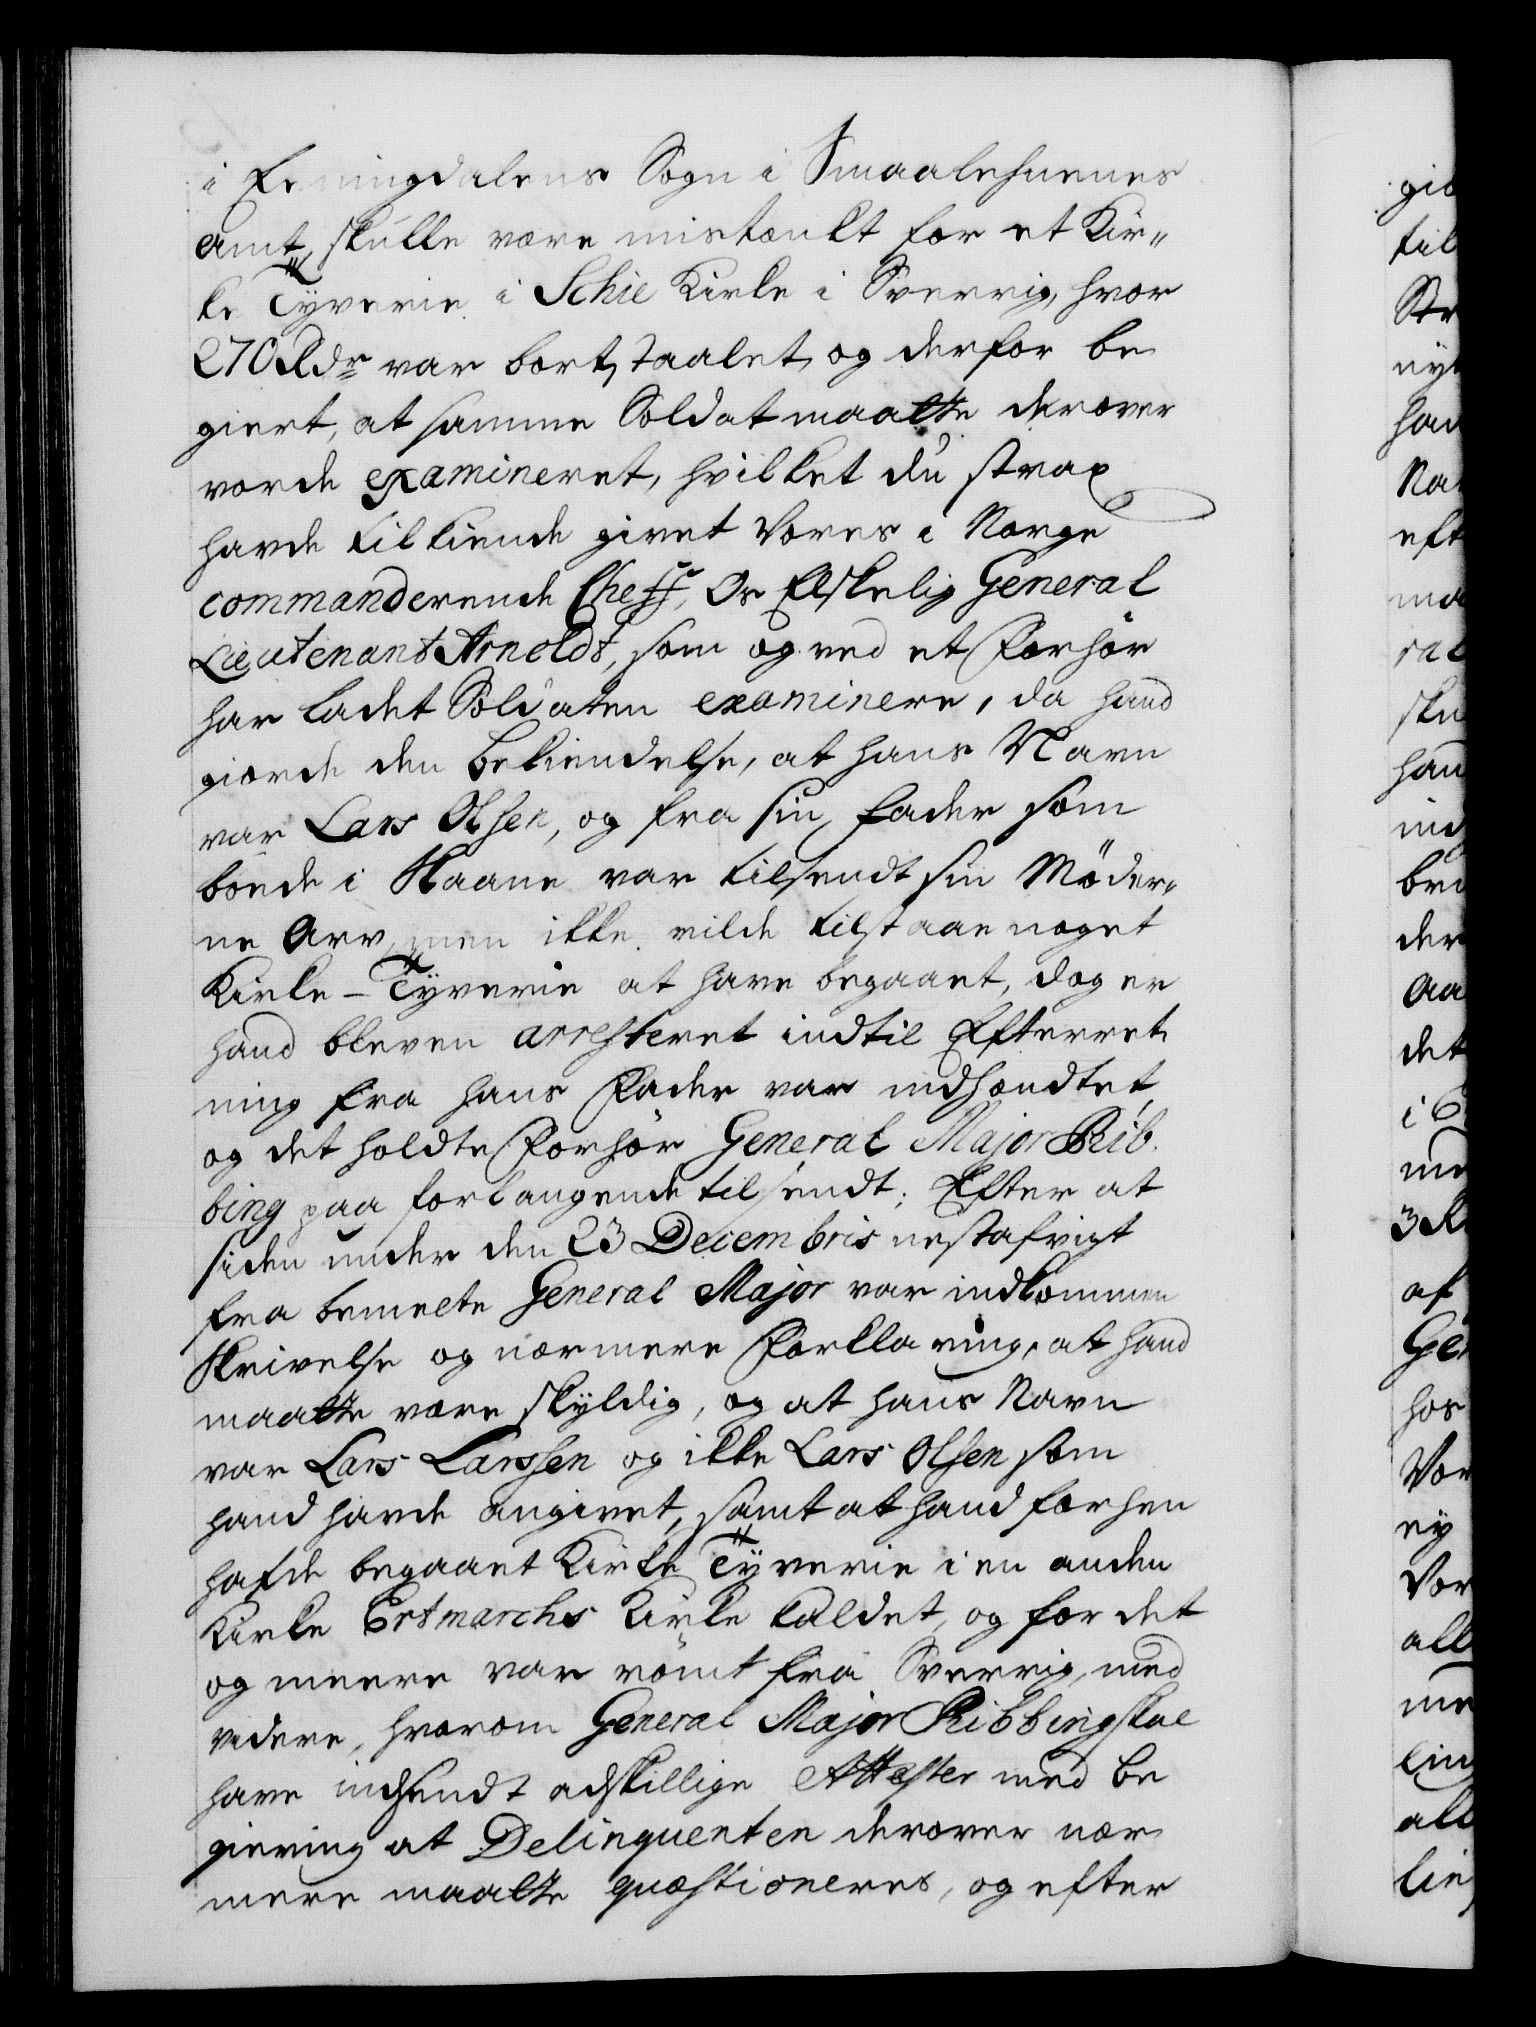 i Eenningdalens Sogn i Smaalehnenes
amt, skulle være mistænkt for et Kir„
ke Tÿverie i Schie Kirke i Sverrig, hvor
270 Rdr var bort, staalet, og derfor be
giert, at samme Soldat maatte derover
vorde examineret, hvilket du strax
havde tilkiende givet Vores i Norge
commanderende Cheff, Os Elskelig General
Lieutenant Arnoldt, som og ved et Forhör
har ladet Soldaten examinere, da hand
giorde den bekiendelse, at hans Navn
var Lars Olsen, og fra sin Fader som
bonde i Skaane var tilsendt sin Möder„
ne Arv, men ikke vilde tilstaae noget
Kirke-Tÿverie at have begaaet, dog er
hand bleven arresteret indtil Efterret
ning fra hans Fader var indhændtet,
og det holdte Forhör General Major Rib
bing paa forlangende tilsendt; Efter at
siden under den 23 Decembris nestafvigt
fra bemelte General Major var indkommen
Skrivelse og nærmere Forklaring, at hand
maatte være skÿldig, og at hans Navn
var Lars Larssen og ikke Lars Olsen som
hand havde angivet, samt at hand forhen
hafde begaaet Kirke Tÿverie i en anden
Kirke Ertmarchs Kirke kaldet, og for det
og meere var römt fra Sverrig, med
videre, hvorom General Major Ribbing skal
have indsendt adskillige Attester med be
giering at Delinquenten derover nær
mere maatte quæstioneres, og efter